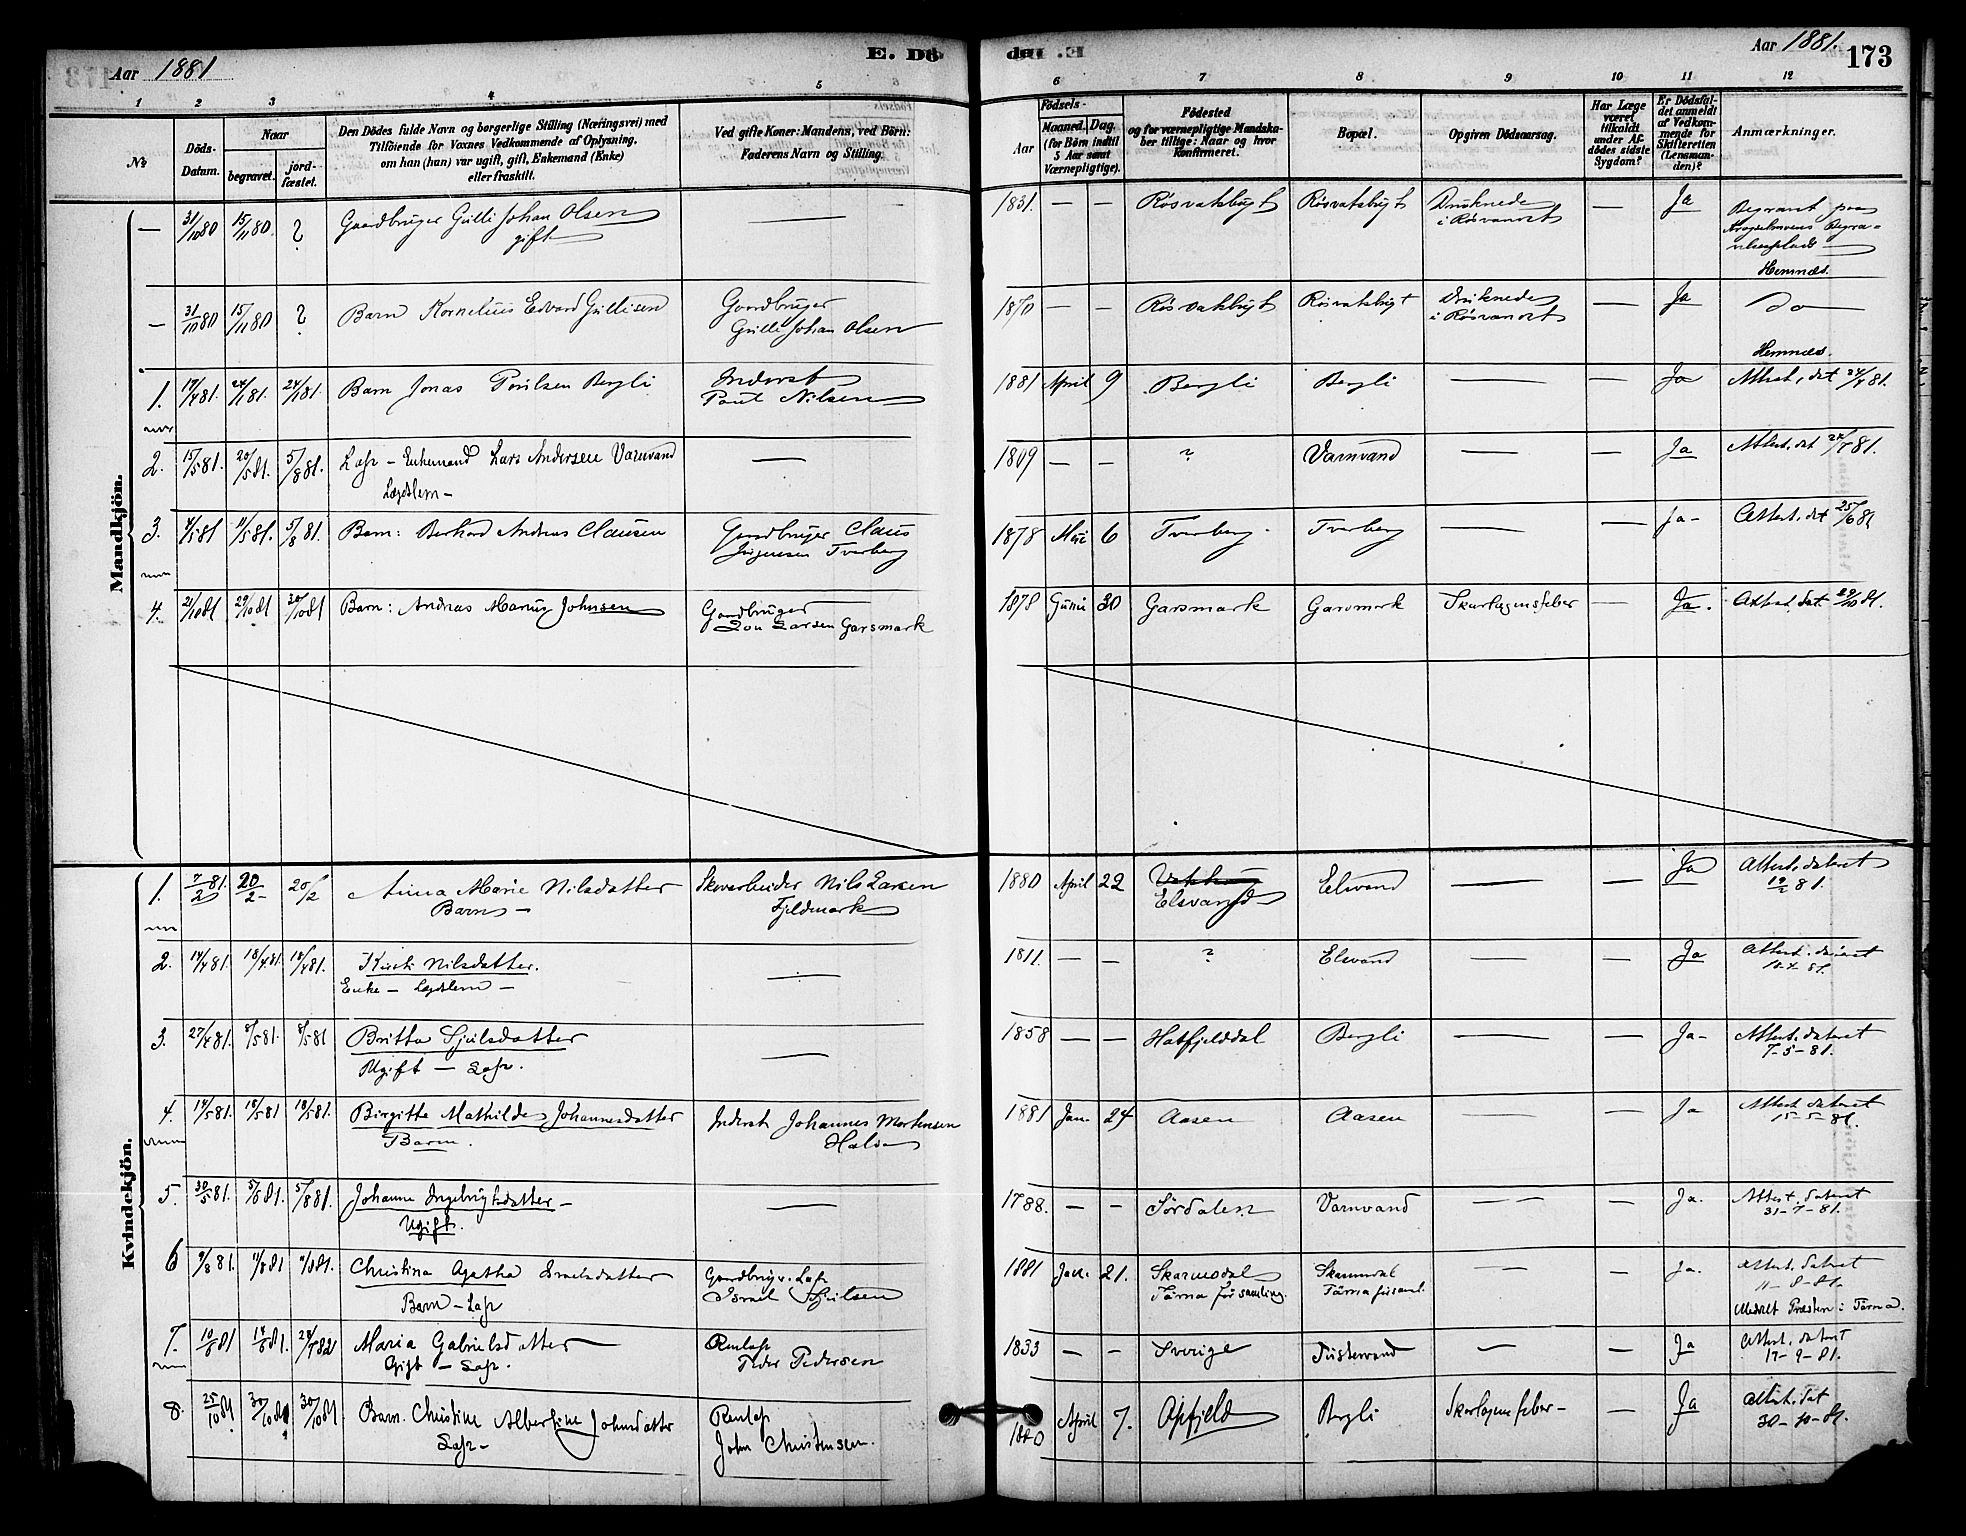 Aar 1881
E. Dö
den
Aar 1881.
173
1 2 3 4 5 6 7 8 9 10 11 12
No
Döds-
Datum.
Naar
begravet.
jord-
fæstet.
Den Dödes fulde Navn og borgerlige Stilling (Næringsvei) med
Tilföiende for Voxnes Vedkommende af Oplysning,
om han (hun) var ugift, gift, Enkemand (Enke)
eller fraskilt.
Ved gifte Koner: Mandens, ved Börn:
Faderens Navn og Stilling.
Födsels-
Aar
Maaned. Dag.
(for Börn indtil
5 Aar samt
Værnepligtige).
Födested
og for værnepligtige Mandska-
ber tillige: Naar og hvor
Konfirmeret.
Bopæl.
Opgiven Dödsaarsag.
Har Læge
været
tilkaldt
under Af-
dödes sidste
Sygdom?
Er Dödsfal-
det anmeldt
af Vedkom-
mende for
Skifteretten
(Lensman-
den)?
Anmærkninger.
Mandkjön.
— 31/10 80 15/11 80. ? Gaardbruger Gulli Johan Olsen — 1831. — — Rösvatsbugt Rösvatsbugt Druknede — Ja Begravet paa
gift i Rösvandet
Hemnæs.
— 31/10 80 15/11 80 ? Barn Kornelius Edvard Gullisen Gaardbruger 1870 — — Rösvatsbugt Rösvatsbugt Druknede — Ja do
Gulli Johan Olsen i Rösvandet
Hemnæs.
1. 19/4 81. 24/ 81. 24/ 81. Barn Jonas Poulsen Bergli Inderst 1881 April 9 Bergli Bergli — — Ja Attest, dat 24/4 81.
Poul Nilsen
2. 15/5 81. 20/5 81. 5/8 81. Lap - Enkemand Lars Andersen Varnvand — 1809 — — ? Varnvand — — Ja Attest. dat 24/7 81.
Lægdslem -
3. 4/5 81 11/5 81. 5/8 81. Barn: Andreas Clausen Gaardbruger Claus 1878 Mai 6 Tverberg Tverberg — — Ja - Attest. dat 25/6 81
Jörgensen Tverberg
4. 21/10 81 29/10 81 30/10 81 Barn: Andreas Marius Johnsen Gaardbruger 1878 Juni 30 Garsmark Garsmark Skarlagensfeber — Ja. Attest. dat 29/10 81.
Jon Larsen Garsmark
Kvindekjön.
1. 7/2 81. 20/2 - 20/2 Anna Marie Nilsdatter Skovarbeider Nils Larsen 1880 April 22 Elsvand — — Ja Attest. dateret
Barn - Fjeldmark Elsvand 19/2 81.
2. 14/4 81. 18/4 81. 18/4 81. Nilsdatter. — 1811. — — ? Elsvand — — Ja Attest. dateret
Enke - Lægdslem - 18-4-81.
3. 27/4 81. 8/5 81. 8/5 81 Britta Sjulsdatter — 1858 — — Hatfjelddal Bergli — — Ja - Attest. dateret
Ugift - Lap. 7-5-81.
4. 14/5 81. 18/5 81 18/5 81. Birgitte Mathilde Johannesdatter Inderst Johannes Mortensen 1881 Jan. 24 Aasen Aasen — — Ja Attest. dateret
Barn. 15-5-81.
5. 30/5 81. 5/6 81. 5/8 81. Johanne Ingebrigtsdatter - — 1788. — — Sördalen Varnvand — — — Ja. Attest. dateret
Ugift. 31-7-81.
6 9/8 81. 11/8 81 11/8 81. Christina Agatha Israelsdatter Gaardbrug. Lap 1881 Jan. 21. Skarmodal — — Ja. Attest. dateret
Barn - Lap Israel Sjulsen Tärna församling. 11-8-81.
Meddelt Præsten i Tärna.
7. 10/ 81 14/ 81. 24/7 82 Maria Gabrielsdatter Renlap 1833 — — Sverige Tustervand — — Ja Attest. dateret
Gift - Lap. Peder Pedersen 17-9-81.
8. 25/10 81 30/10 81 30/10 81 Barn. Christine Albertine Johnsdatter Renlap 1880 April 7. Apfjeld Bergli Skarlagensfeber - — Ja Attest. dat
Lap - John Christensen. 30-10-81.